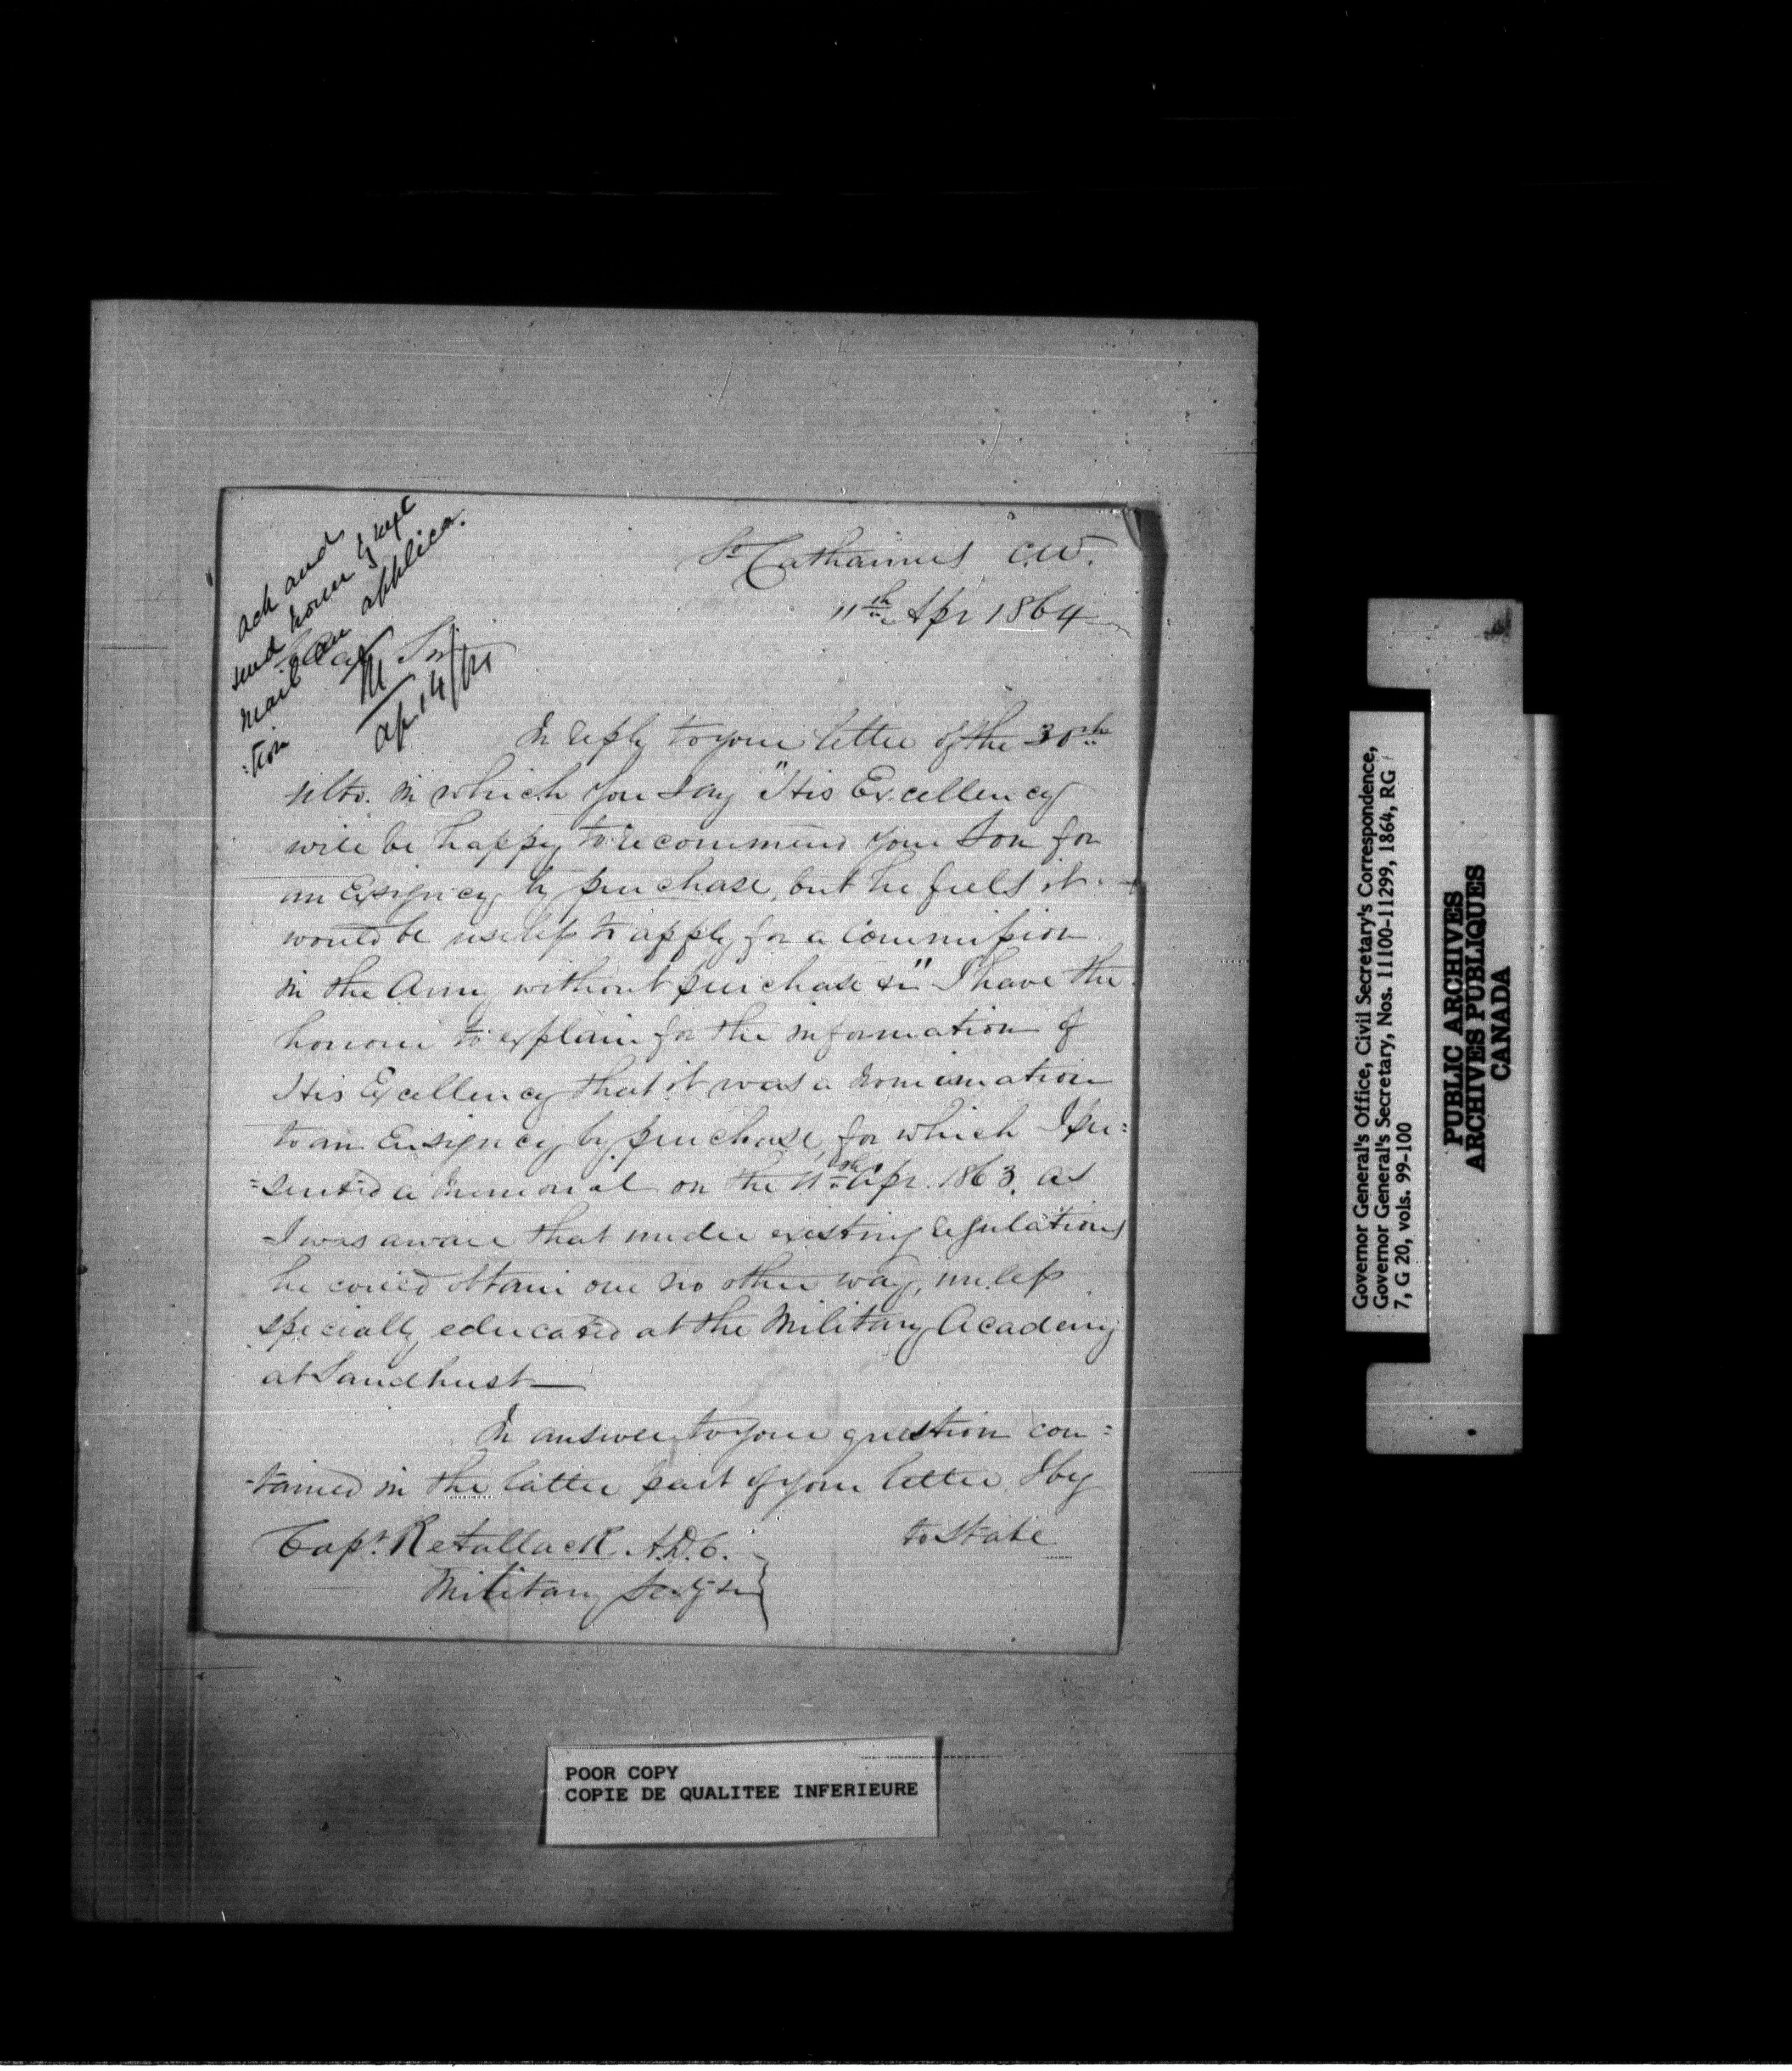 ack and
send home by next
mail an applica.
:tion
M
Ap. 14/64
St Catharines C.W.
11th Apr 1864
Dear Sir
In reply to your letter of the 30th
ulto. in which you say "His Excellency
will be happy to recommend your Son for
an Ensigncy by purchase, but he feels it
would be useless to apply for a Commission
in the Army without purchase &c" I have the
honour to explain for the information of
His Excellency that it was a nomination
to an Ensigncy by purchase, for which I pre:
=sented a memorial on the 11th Apr. 1863. as
I was aware that under existing regulations
he could obtain one no other way, unless
specially educated at the Military Academy
at Sandhurst—
In answer to your question con:
-tained in the latter part of your letter, I beg
to state
Capt. Retallack A.D.C.
Military Secy &c
POOR COPY
COPIE DE QUALITEE INFERIEURE
Governor General's Office, Civil Secretary's Correspondence,
Governor General's Secretary, Nos. 11100-11299, 1864, RG
7, G 20, vols. 99-100
PUBLIC ARCHIVES
ARCHIVES PUBLIQUES
CANADA